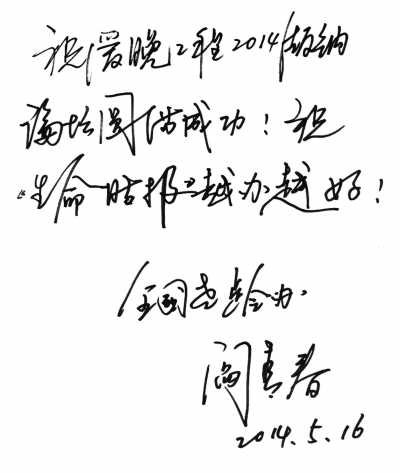 祝爱晚工程2014版纳
论坛圆满成功！祝
《生命时报》越办越好！
全国老龄办
阎青春
2014.5.16